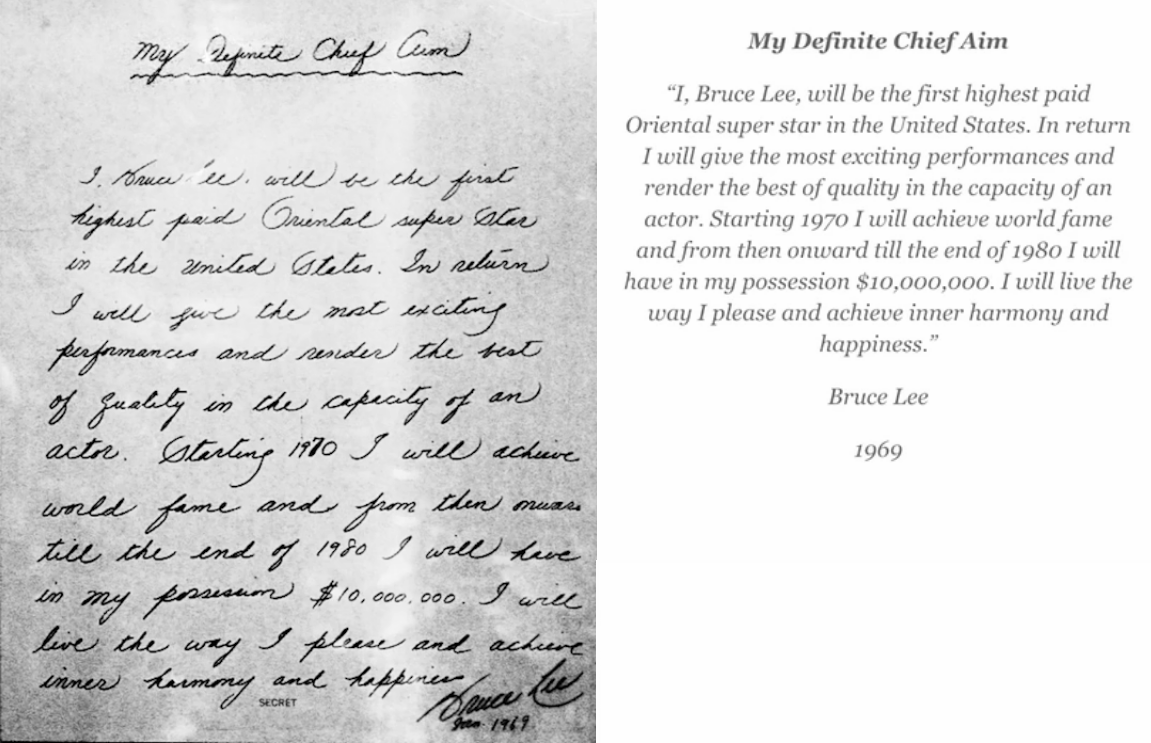 My Definite Chief Aim
I, Bruce Lee, will be the first
highest paid Oriental super Star
in the United States. In return
I will give the most exciting
performances and render the best
of quality in the capacity of an
actor. Starting 1970 I will achieve
world fame and from then onward
till the end of 1980 I will have
in my possession $10,000,000. I will
live the way I please and achieve
inner harmony and happiness
SECRET
Bruce Lee
Jan. 1969
My Definite Chief Aim
“I, Bruce Lee, will be the first highest paid
Oriental super star in the United States. In return
I will give the most exciting performances and
render the best of quality in the capacity of an
actor. Starting 1970 I will achieve world fame
and from then onward till the end of 1980 I will
have in my possession $10,000,000. I will live the
way I please and achieve inner harmony and
happiness.”
Bruce Lee
1969